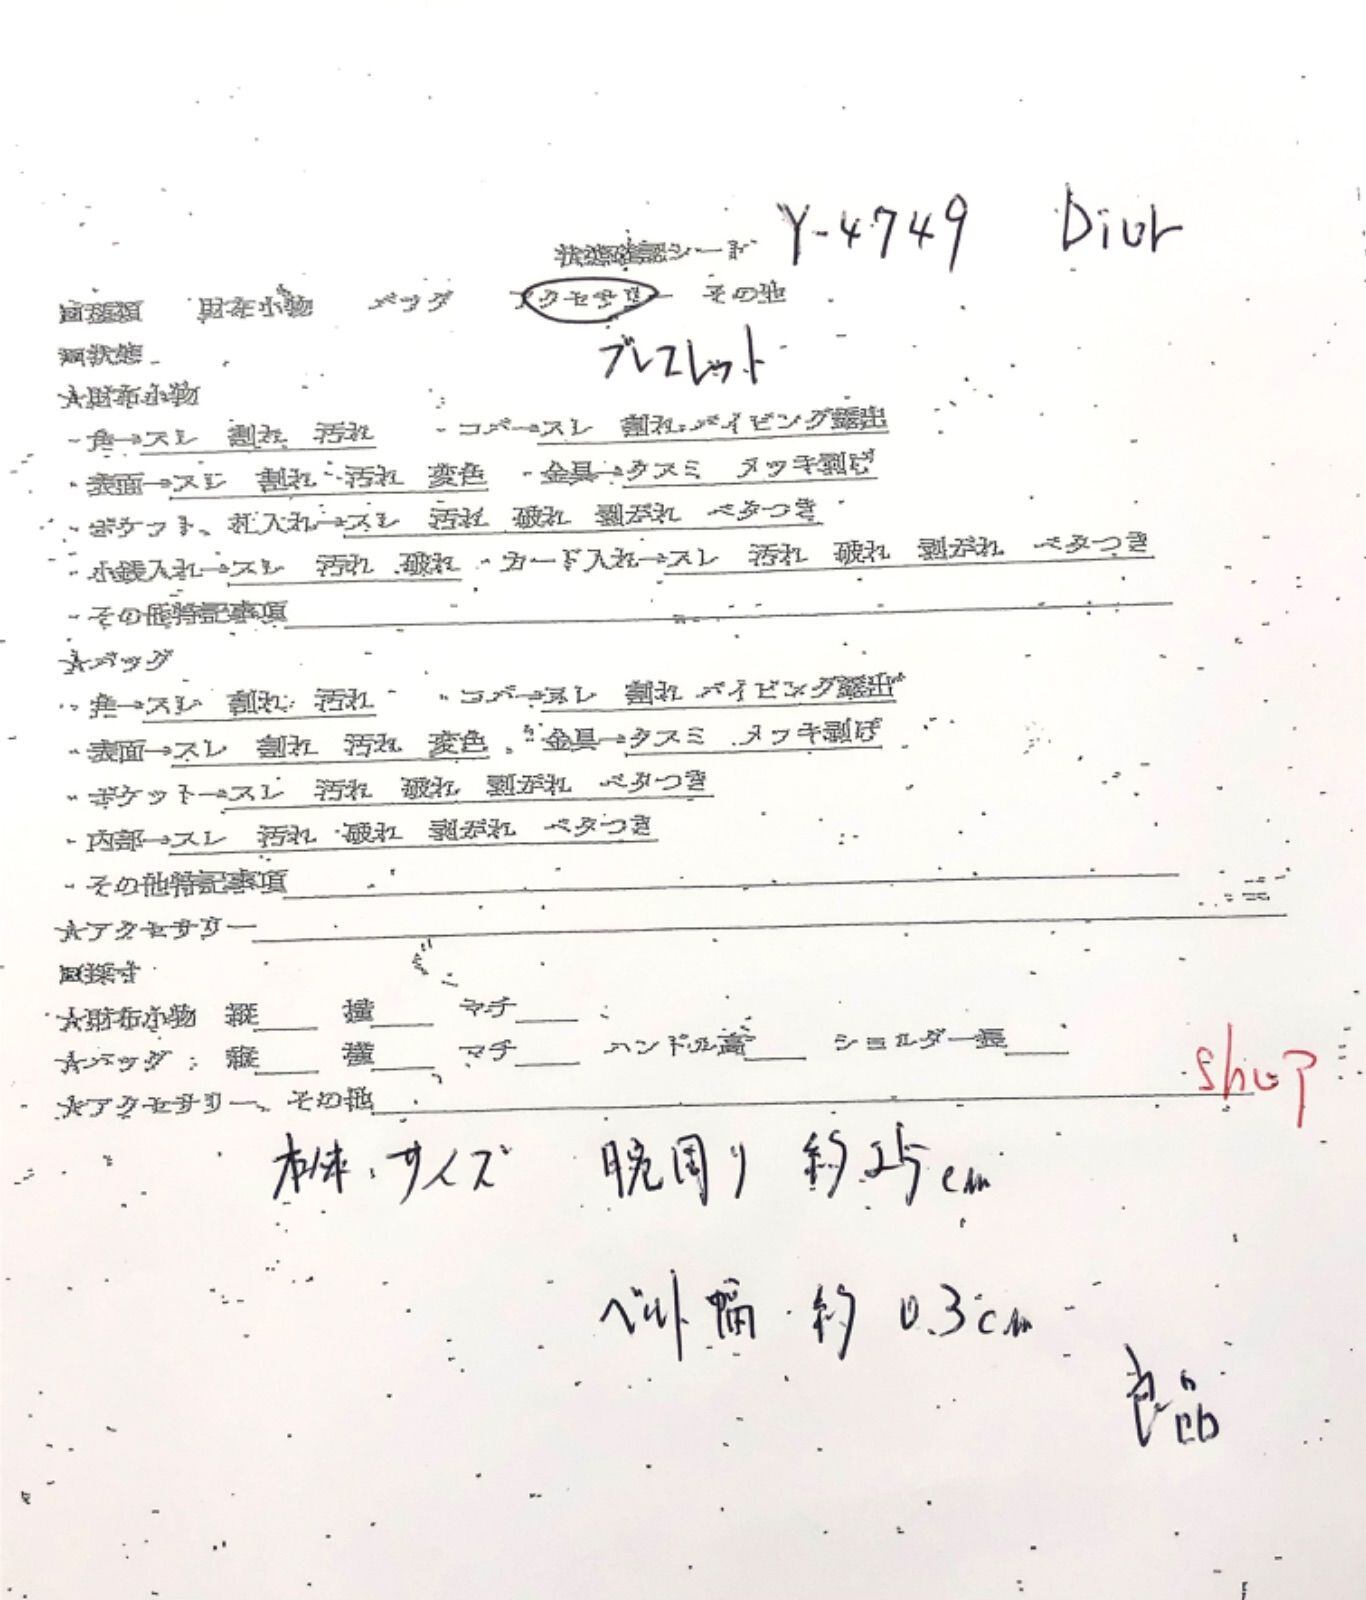 状態確認シート Y-4749 Dior
□種類 財布小物 バッグ アクセサリー その他
□状態 ブレスレット
★財布小物
・角→スレ 割れ 汚れ ・コバ→スレ 割れ パイピング露出
・表面→スレ 割れ 汚れ 変色 ・金具→クスミ メッキ剥げ
・ポケット、札入れ→スレ 汚れ 破れ 剥がれ ベタつき
・小銭入れ→スレ 汚れ 破れ ・カード入れ→スレ 汚れ 破れ 剥がれ ベタつき
・その他特記事項
★バッグ
・角→スレ 割れ 汚れ ・コバ→スレ 割れ パイピング露出
・表面→スレ 割れ 汚れ 変色 ・金具→クスミ メッキ剥げ
・ポケット→スレ 汚れ 破れ 剥がれ ベタつき
・内部→スレ 汚れ 破れ 剥がれ ベタつき
・その他特記事項
★アクセサリー
□採寸
★財布小物 縦 横 マチ
★バッグ 縦 横 マチ ハンドル高 ショルダー長
★アクセサリー、その他
shop
本体サイズ 腕周り 約25cm
ベルト幅 約0.3cm
良品